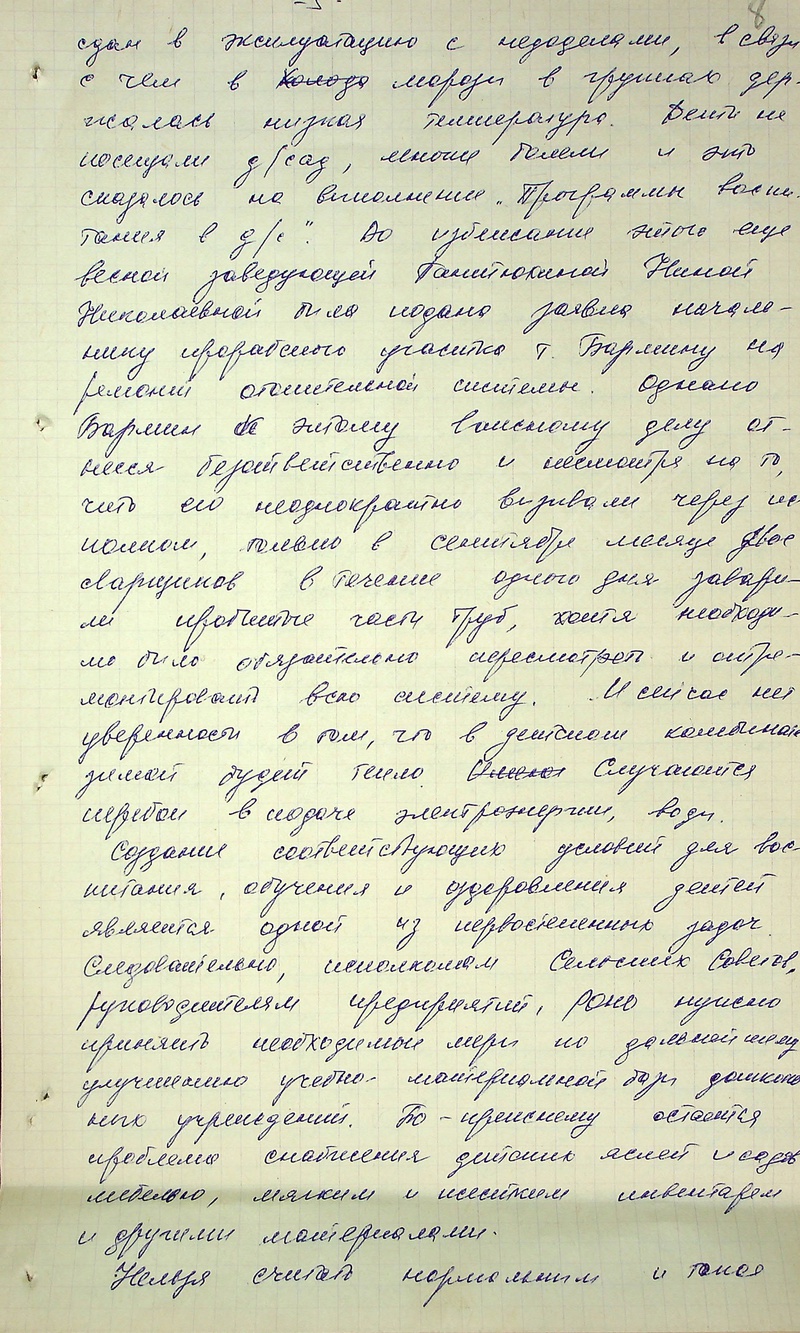 -3-
8
сдан в эксплуатацию с недоделами, в связи
с чем в холода морозы в группах дер-
жалась низкая температура. Дети не
посещали д/сад, многие болели и это
сказалось на выполнении „Программы воспи-
тания в д/с". Во избежание этого еще
весной заведующей Нинoй
Николаевной была подана заявка началь-
нику прорабского участка т. Бармину на
ремонт отопительной системы. Однако
Бармин к этому важному делу от-
несся безответственно и несмотря на то,
что его неоднократно вызывали через ис
полком, только в сентябре месяце двое
сварщиков в течение одного дня завари-
ли пробитые части труб, хотя необходи-
мо было обязательно пересмотреть и отре-
монтировать всю систему. И сейчас нет
уверенности в том, что в детском комбинате
зимой будет тепло Случаются
перебои в подаче электроэнергии, воды.
Создание соответствующих условий для вос-
питания, обучения и оздоровления детей
является одной из первостепенных задач.
Следовательно, исполкомам Сельских Советов,
руководителям предприятий, РОНО нужно
принять необходимые меры по дальнейшему
улучшению учебно-материальной базы дошколь
ных учреждений. По-прежнему остается
проблема снабжения детских яслей и садов
мебелью, мягким и жестким инвентарем
и другими материалами.
Нельзя считать нормальным и такое